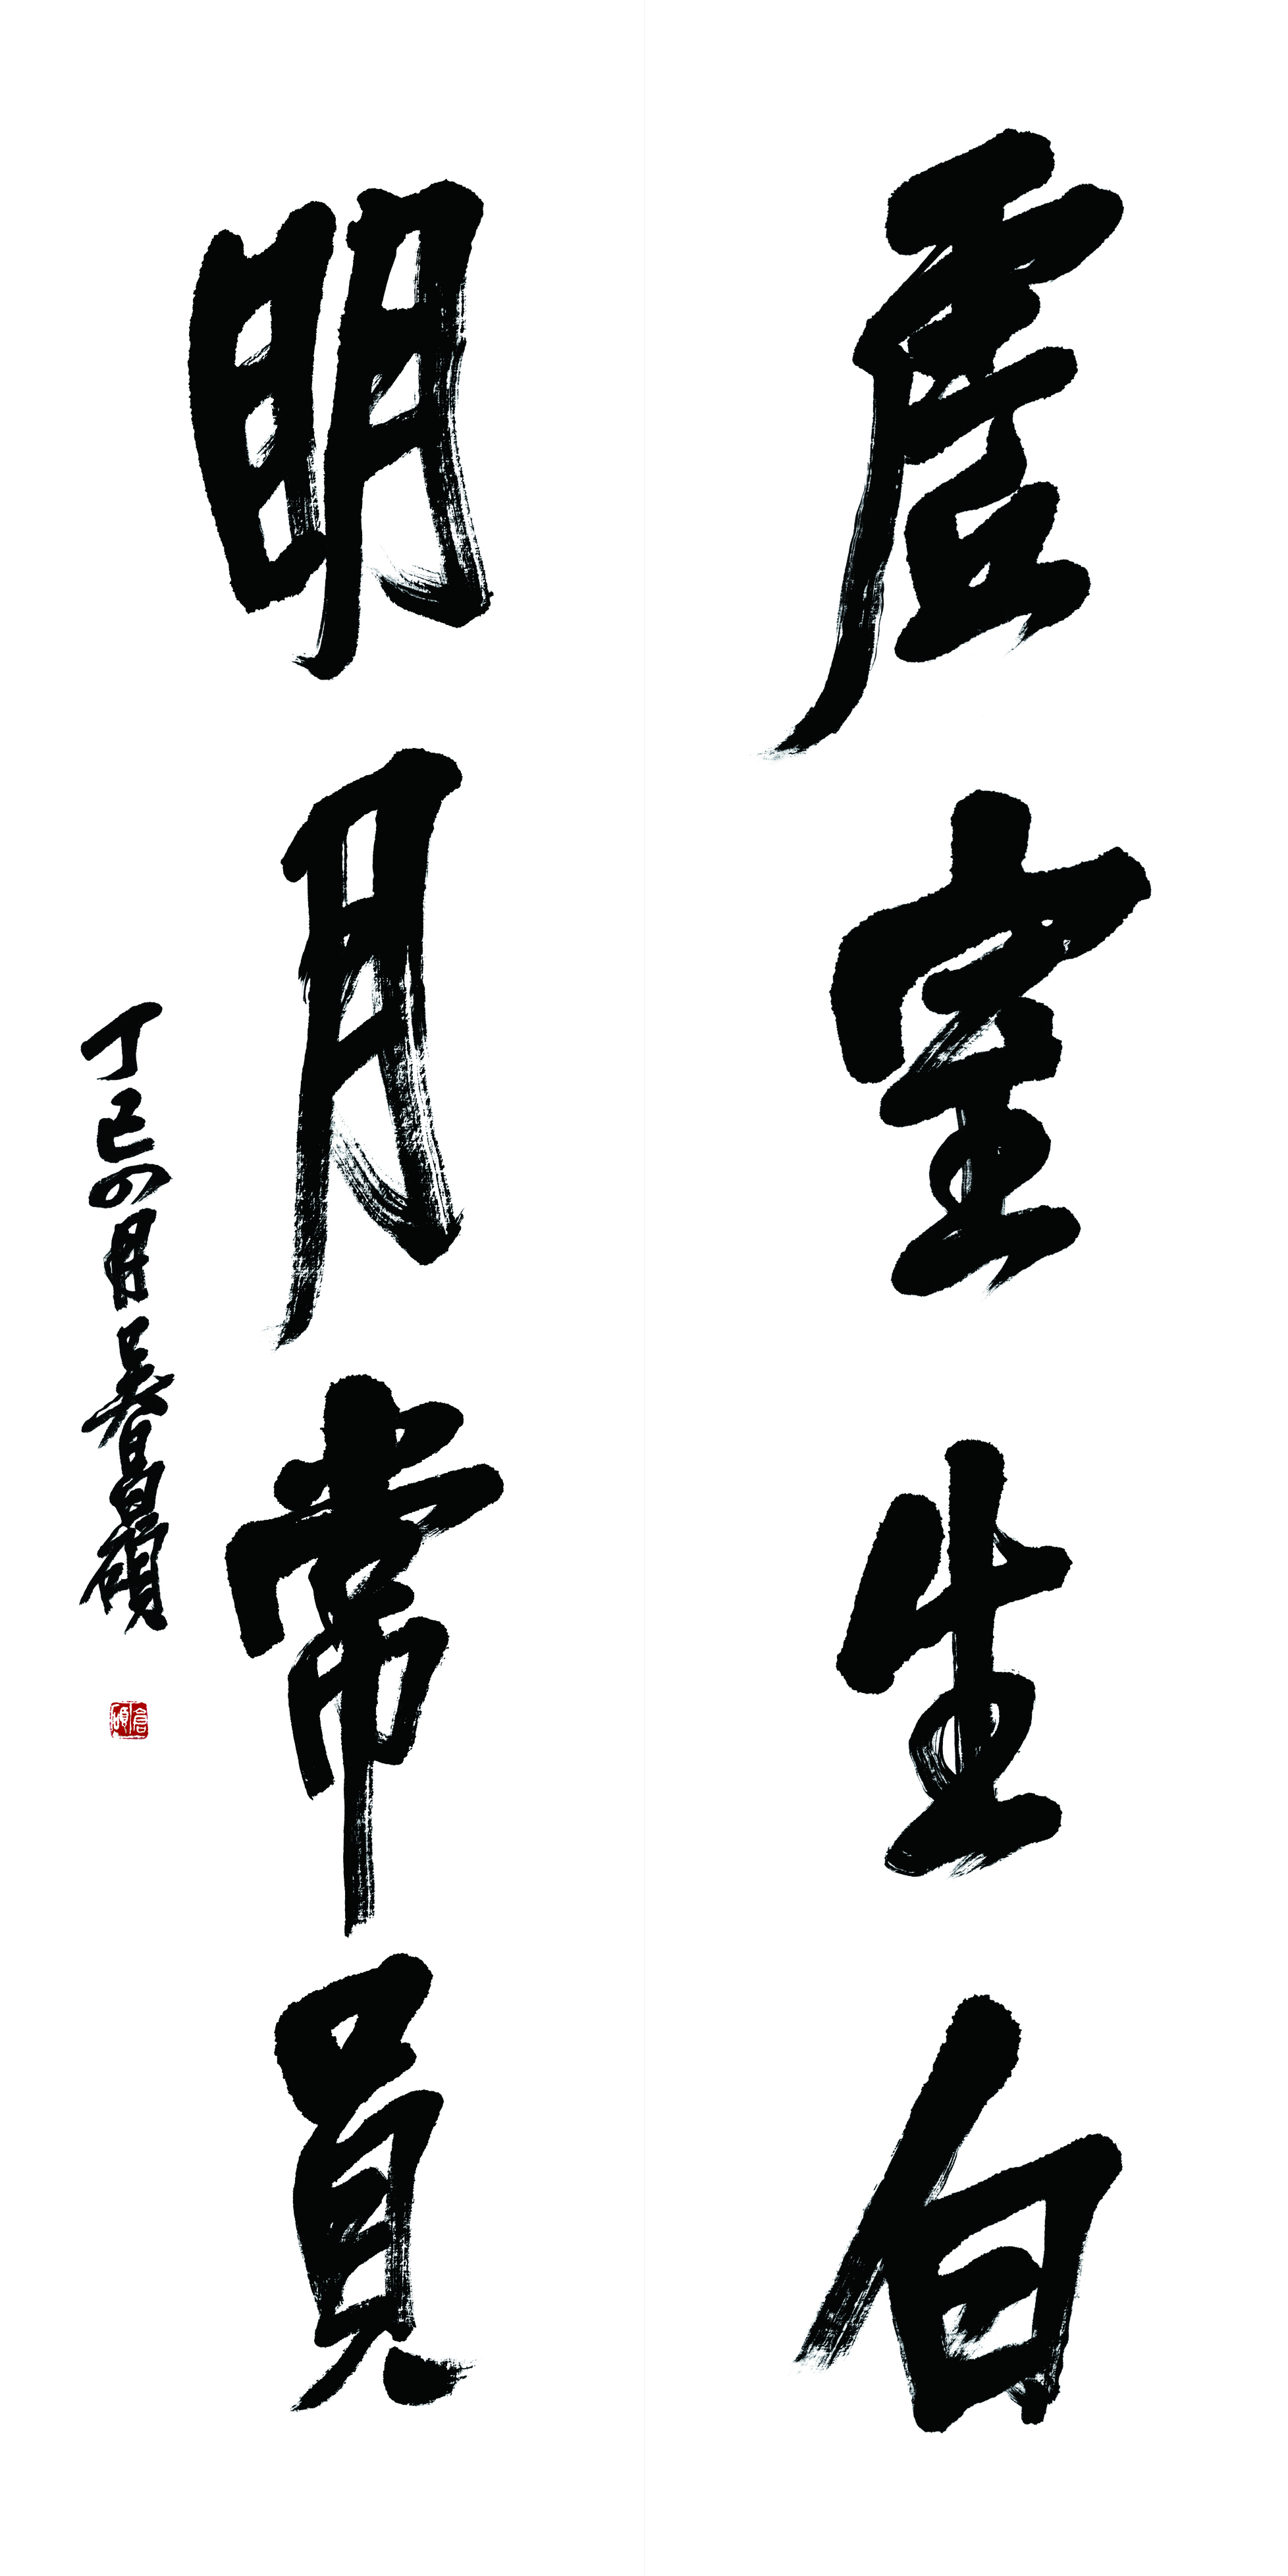 虛室生白
明月常員
丁巳四月吳昌碩
倉碩